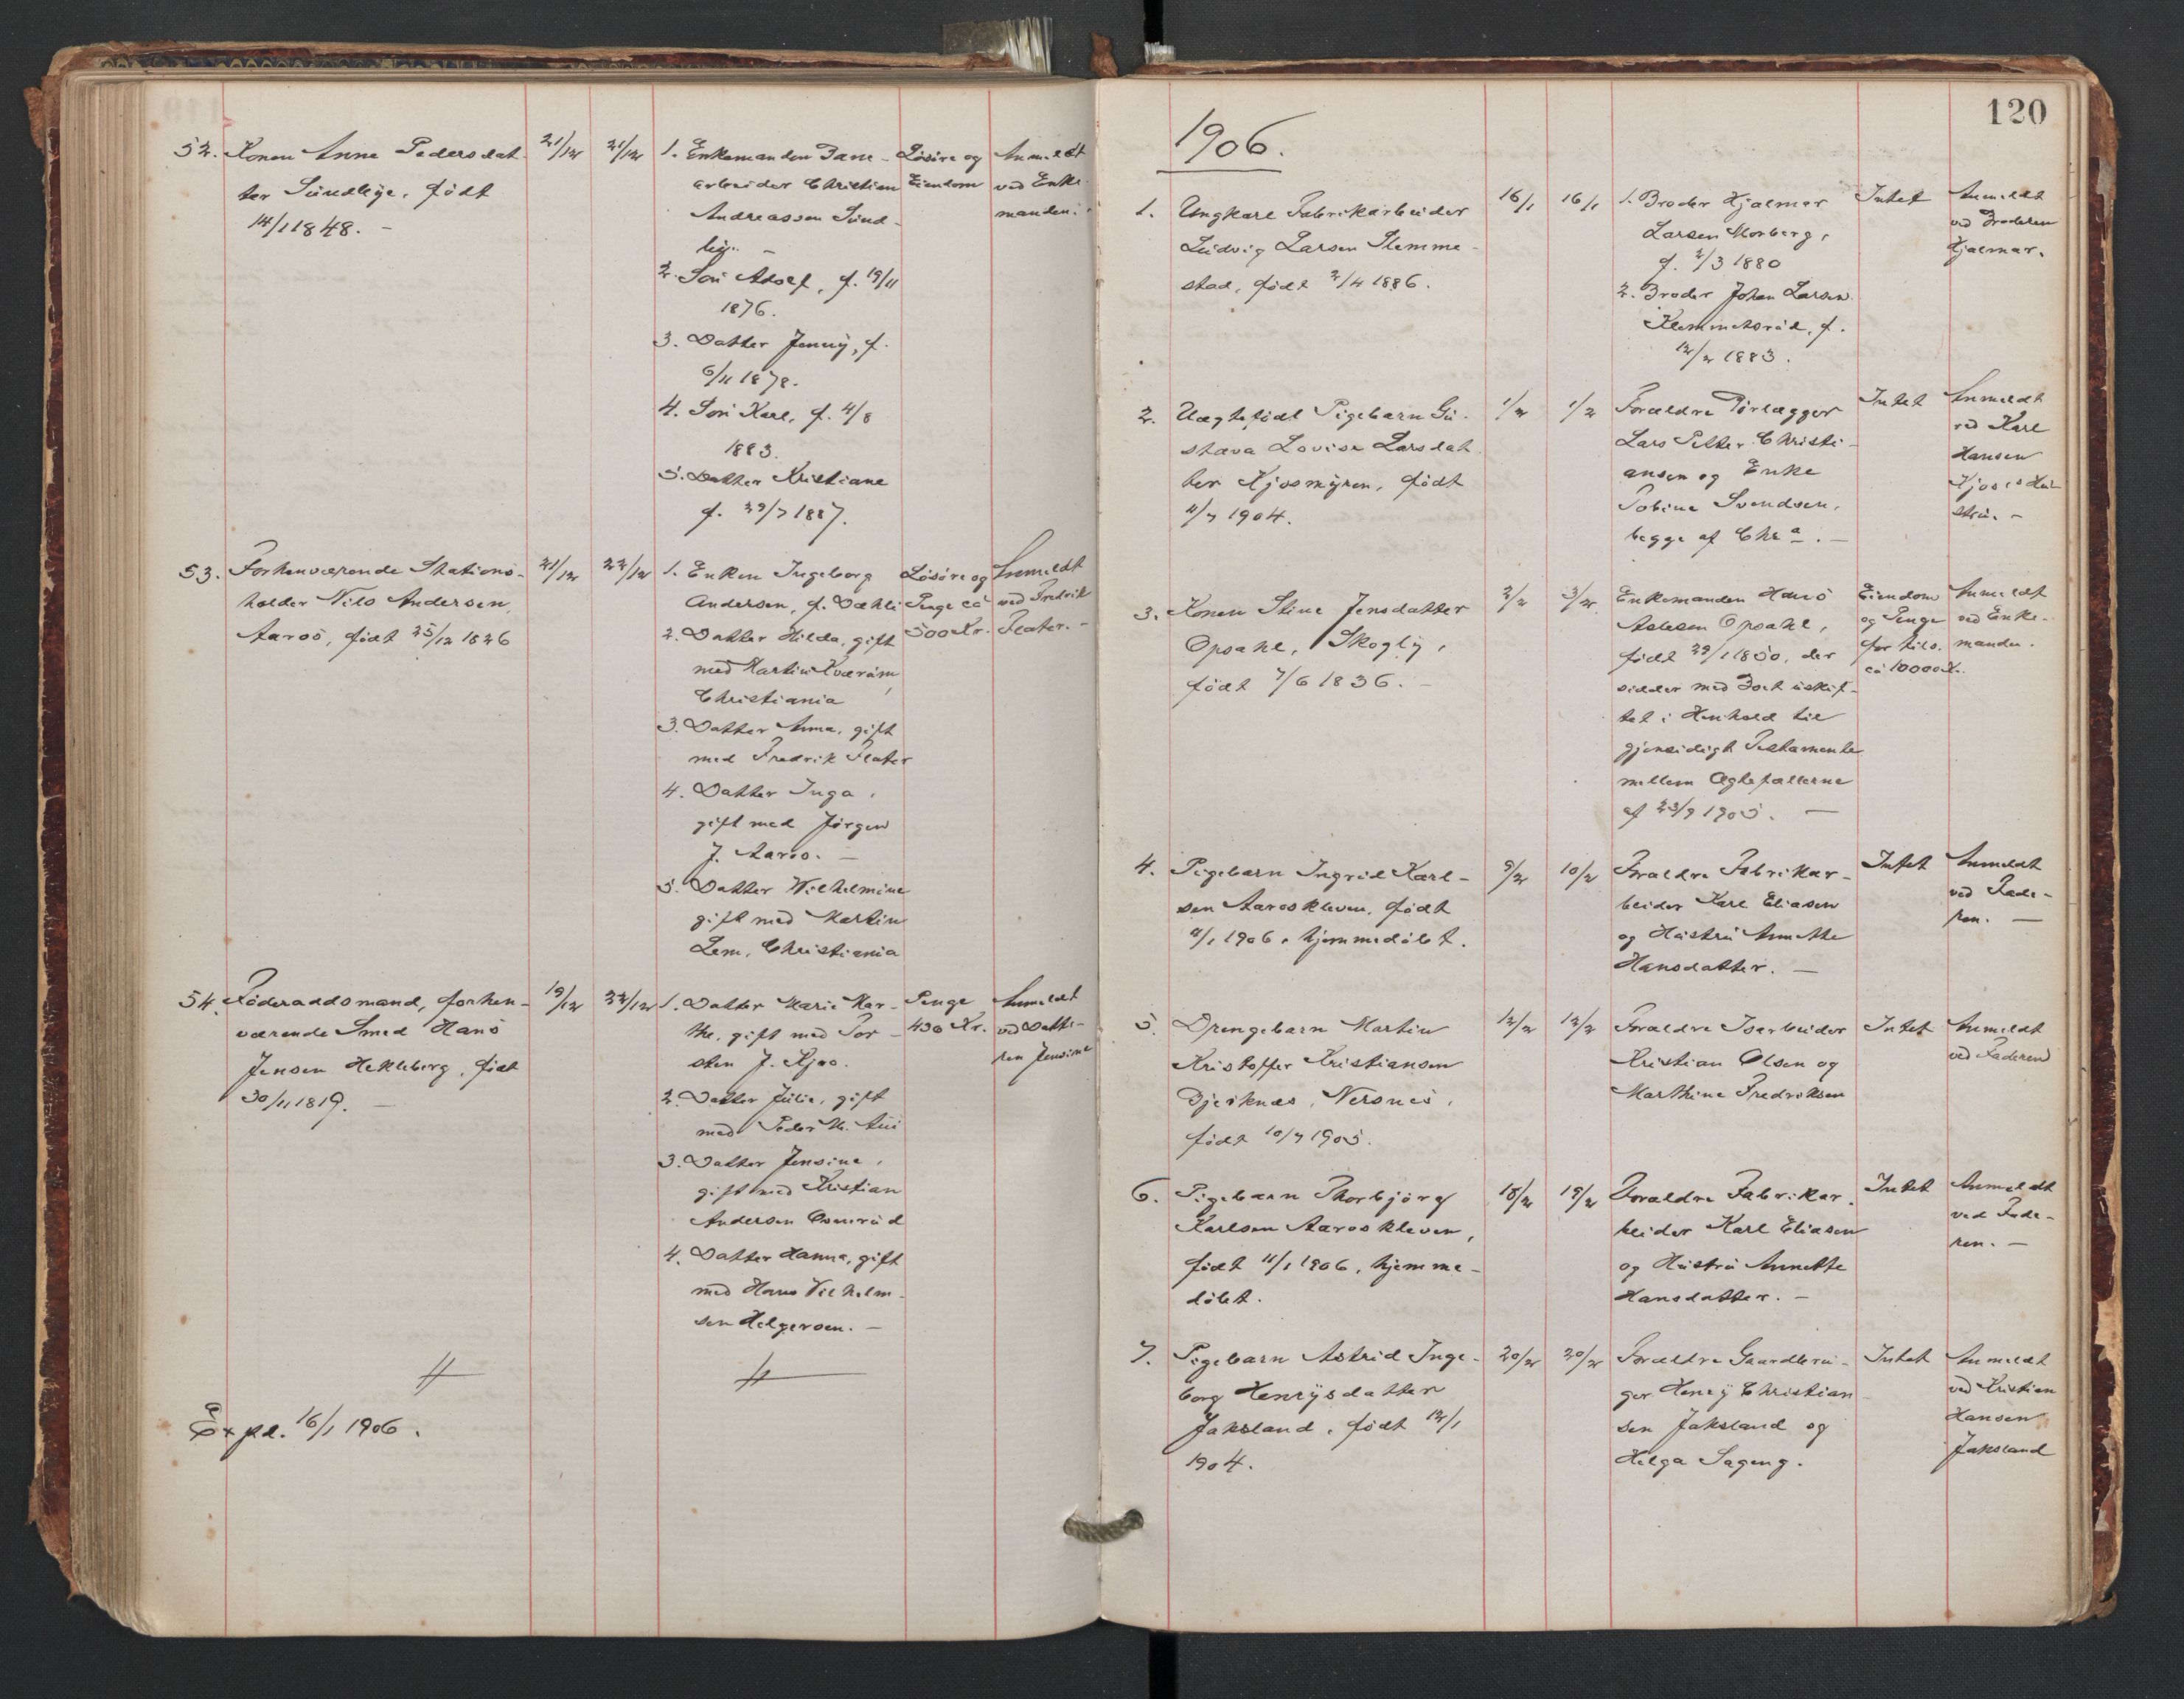 52. Konen Anne Pedersdat-
ter Sundlýe, født
14/1 1848. -
21/12
21/12
1. Enkemanden Bane-
arbeider Christian
Andreassen Sund-
lýe. -
2. Søn Adolf, f. 19/11
1876.
3. Datter Jenný, f.
6/11 1878.
4. Søn Karl, f. 4/8
1883.
5. Datter Kristiane
f. 29/7 1887.
Løsøre og
Eiendom
Anmeldt
ved Enke-
manden.
53. Forhenværende Stations-
holder Nils Andersen,
Aaros, født 25/12 1826
21/12
22/12
1. Enken Ingeborg
Andersen, f. Dæhli
2. Datter Hilda, gift
med Martin Kværum,
Christiania
3. Datter Anna, gift
med Fredrik Flater
4. Datter Inga,
gift med Jørgen
J. Aaros. -
5. Datter Wilhelmine
gift med Martin
Lem, Christiania
Løsøre og
Penge ca
500 Kr.
Anmeldt
ved Fredrik
Flater. -
54. Føderaadsmand, forhen-
værende Smed Hans
Jensen Hekleberg, født
30/11 1819. -
19/12
22/12
1. Datter Marie Mar-
the, gift med Tor-
sten J. Kjos.
2. Datter Julie, gift
med Peder M.
3. Datter Jensine,
gift med Kristian
Andersen Osmrud
4. Datter Hanna, gift
med Hans Vilhelm-
sen Helgersen. -
Penge
430 Kr.
Anmeldt
ved Datte-
ren Jensine
Expd. 16/1 1906.
120
1906.
1. Ungkarl Fabrikarbeider
Ludvig Larsen Slemme-
stad, født 2/4 1886.
16/1
16/1
1. Broder Hjalmar
Larsen Morberg,
f. 2/3 1880
2. Broder Johan Larsen
Klemmetsrud, f.
12/2 1883.
Intet
Anmeldt
ved Broderen
Hjalmar.
2. Uægtefødt Pigebarn Gu-
stava Lovise Larsdat
ter Kjosmýren, født
11/7 1904.
1/2
1/2
Forældre Rørlægger
Lars Petter Christi-
ansen og Enke
Tobine Svendsen,
begge af Chra. -
Intet
Anmeldt
ved Karl
Hansen
Kjos's Hu-
stru. -
3. Konen Stine Jensdatter
Opsahl, Skoglý,
født 7/6 1836. -
2/2
3/2
Enkemanden Hans
Aslesen Opsahl,
født 29/1 1850, der
sidder med Boet uskif-
tet i Henhold til
gjensidigt Testamente
mellem Ægtefællerne
af 23/9 1905. -
Eiendom
og Penge
for tils.
ca 10000 K.
Anmeldt
ved Enke-
manden.
4. Pigebarn Ingrid Karl-
sen Aaroskleven, født
11/1 1906, hjemmedøbt.
9/2
10/2
Forældre Fabrikar-
beider Karl Eliasen
og Hustru Annette
Hansdatter. -
Intet
Anmeldt
ved Fade-
ren. -
5. Drengebarn Martin
Kristoffer Kristiansen
Bjerknæs, Nersnes,
født 10/7 1905.
12/2
12/2
Forældre Isarbeider
Kristian Olsen og
Marthine Fredriksen
Intet
Anmeldt
ved Faderen
6. Pigebarn Thorbjørg
Karlsen Aaroskleven,
født 11/1 1906, hjemme-
døbt.
18/2
19/2
Forældre Fabrikar-
beider Karl Eliasen
og Hustru Annette
Hansdatter. -
Intet
Anmeldt
ved Fade-
ren. -
7. Pigebarn Astrid Inge-
borg Henrýsdatter
Jaksland, født 12/1
1904.
20/2
20/2
Forældre Gaardbru-
ger Henrý Christian-
sen Jaksland og
Helga Sageng.
Intet
Anmeldt
ved Kristian
Hansen
Jaksland